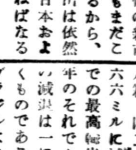 もまだこ
るから、
は依然
日本およ
ればなる
六六ミルに
での最高
年のそれで
の減退は一
くものであ